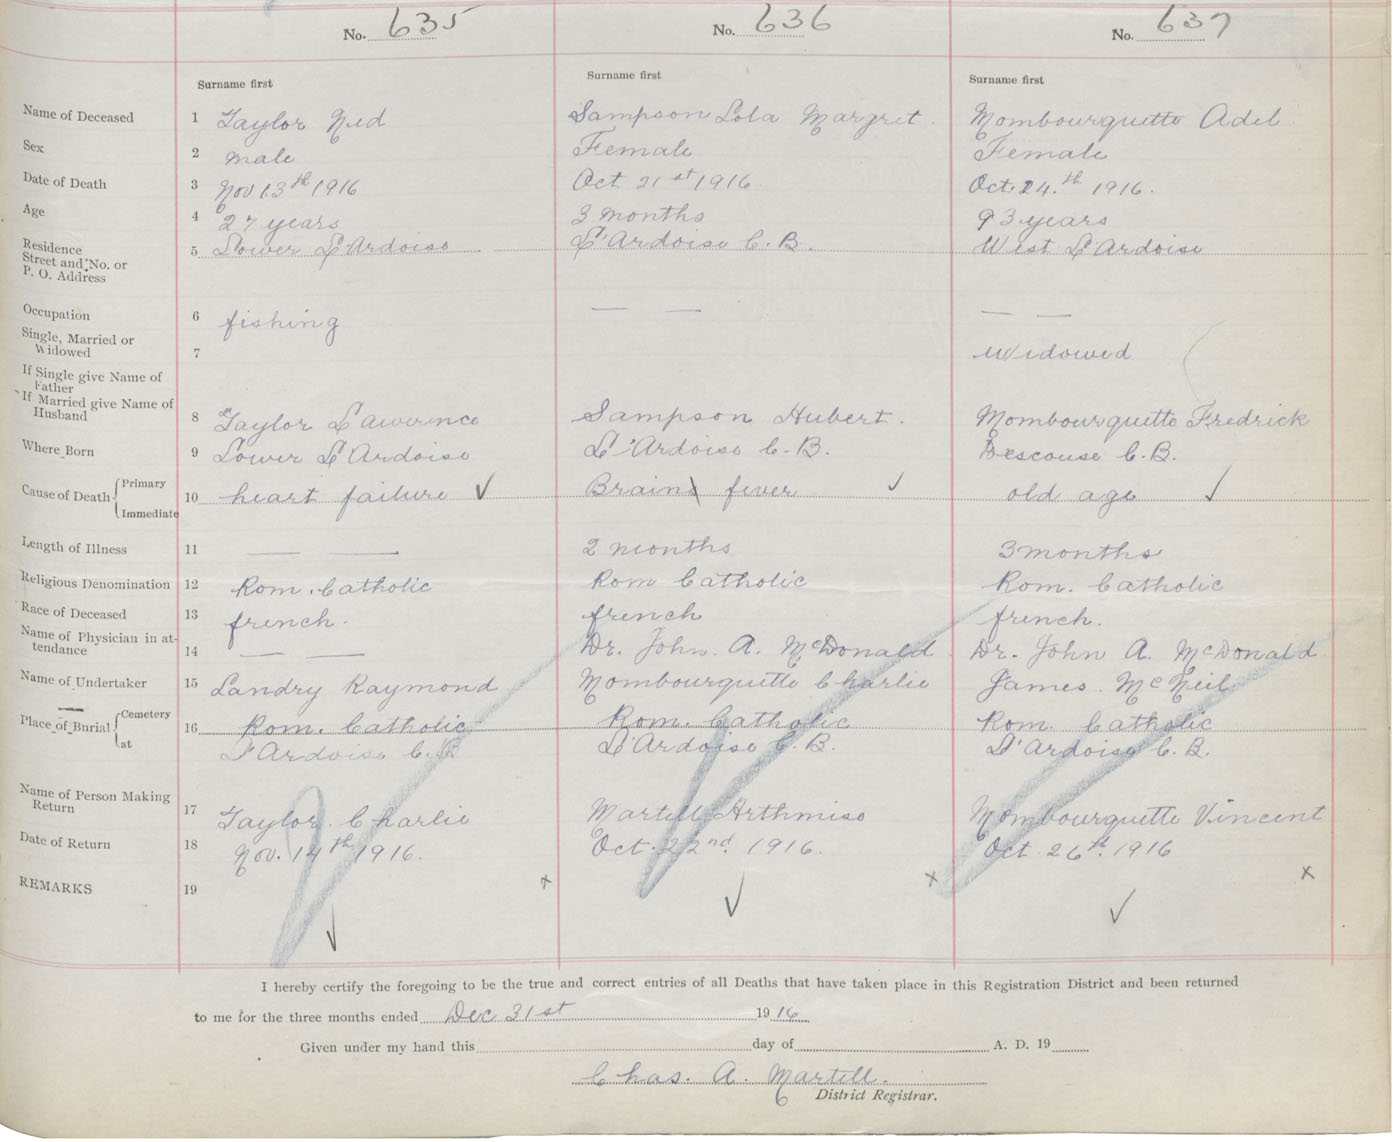 No. 635 No. 636 No. 637
Surname first Surname first Surname first
Name of Deceased 1 Taylor Ned Sampson Lola Margret Mombourquette Adel
Sex 2 male Female Female
Date of Death 3 Nov 13th 1916 Oct 21st 1916. Oct. 24.th 1916.
Age 4 27 years 3 months 93 years
Residence Street and No. or P. O. Address 5 Lower L'Ardoise L'Ardoise C. B. West L'Ardoise
Occupation 6 fishing — — — —
Single, Married or Widowed 7 Widowed
If Single give Name of Father
If Married give Name of Husband 8 Taylor Lawrence Sampson Hubert. Mombourquette Fredrick
Where Born 9 Lower L'Ardoise L'Ardoise C. B. Descouse C. B.
Cause of Death { Primary Immediate 10 heart failure ✓ Brain fever ✓ old age ✓
Length of Illness 11 — — 2 months 3 months
Religious Denomination 12 Rom. Catholic Rom Catholic Rom. Catholic
Race of Deceased 13 french. french french.
Name of Physician in attendance 14 — — Dr. John. A. McDonald Dr. John A. McDonald
Name of Undertaker 15 Landry Raymond Mombourquette Charlie James. McNeil
Place of Burial { Cemetery 16 Rom. Catholic Rom. Catholic Rom. Catholic
at L'Ardoise C. B L'Ardoise C. B. L'Ardoise C. B.
Name of Person Making Return 17 Taylor Charlie Martell Arthmise Mombourquette Vincent
Date of Return 18 Nov. 14th 1916. Oct. 22nd. 1916. Oct. 26th. 1916
REMARKS 19 x x x
✓ ✓ ✓
I hereby certify the foregoing to be the true and correct entries of all Deaths that have taken place in this Registration District and been returned
to me for the three months ended Dec 31st 1916
Given under my hand this day of A. D. 19
Chas. A. Martell.
District Registrar.